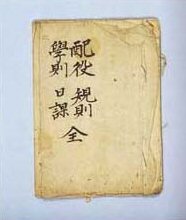 配役 規則
學則 日課 全